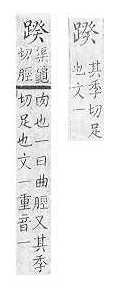 䠏
其季切足
也文一
䠏
渠龜
切脛
肉也一曰曲脛又其季
切足也文一重音一